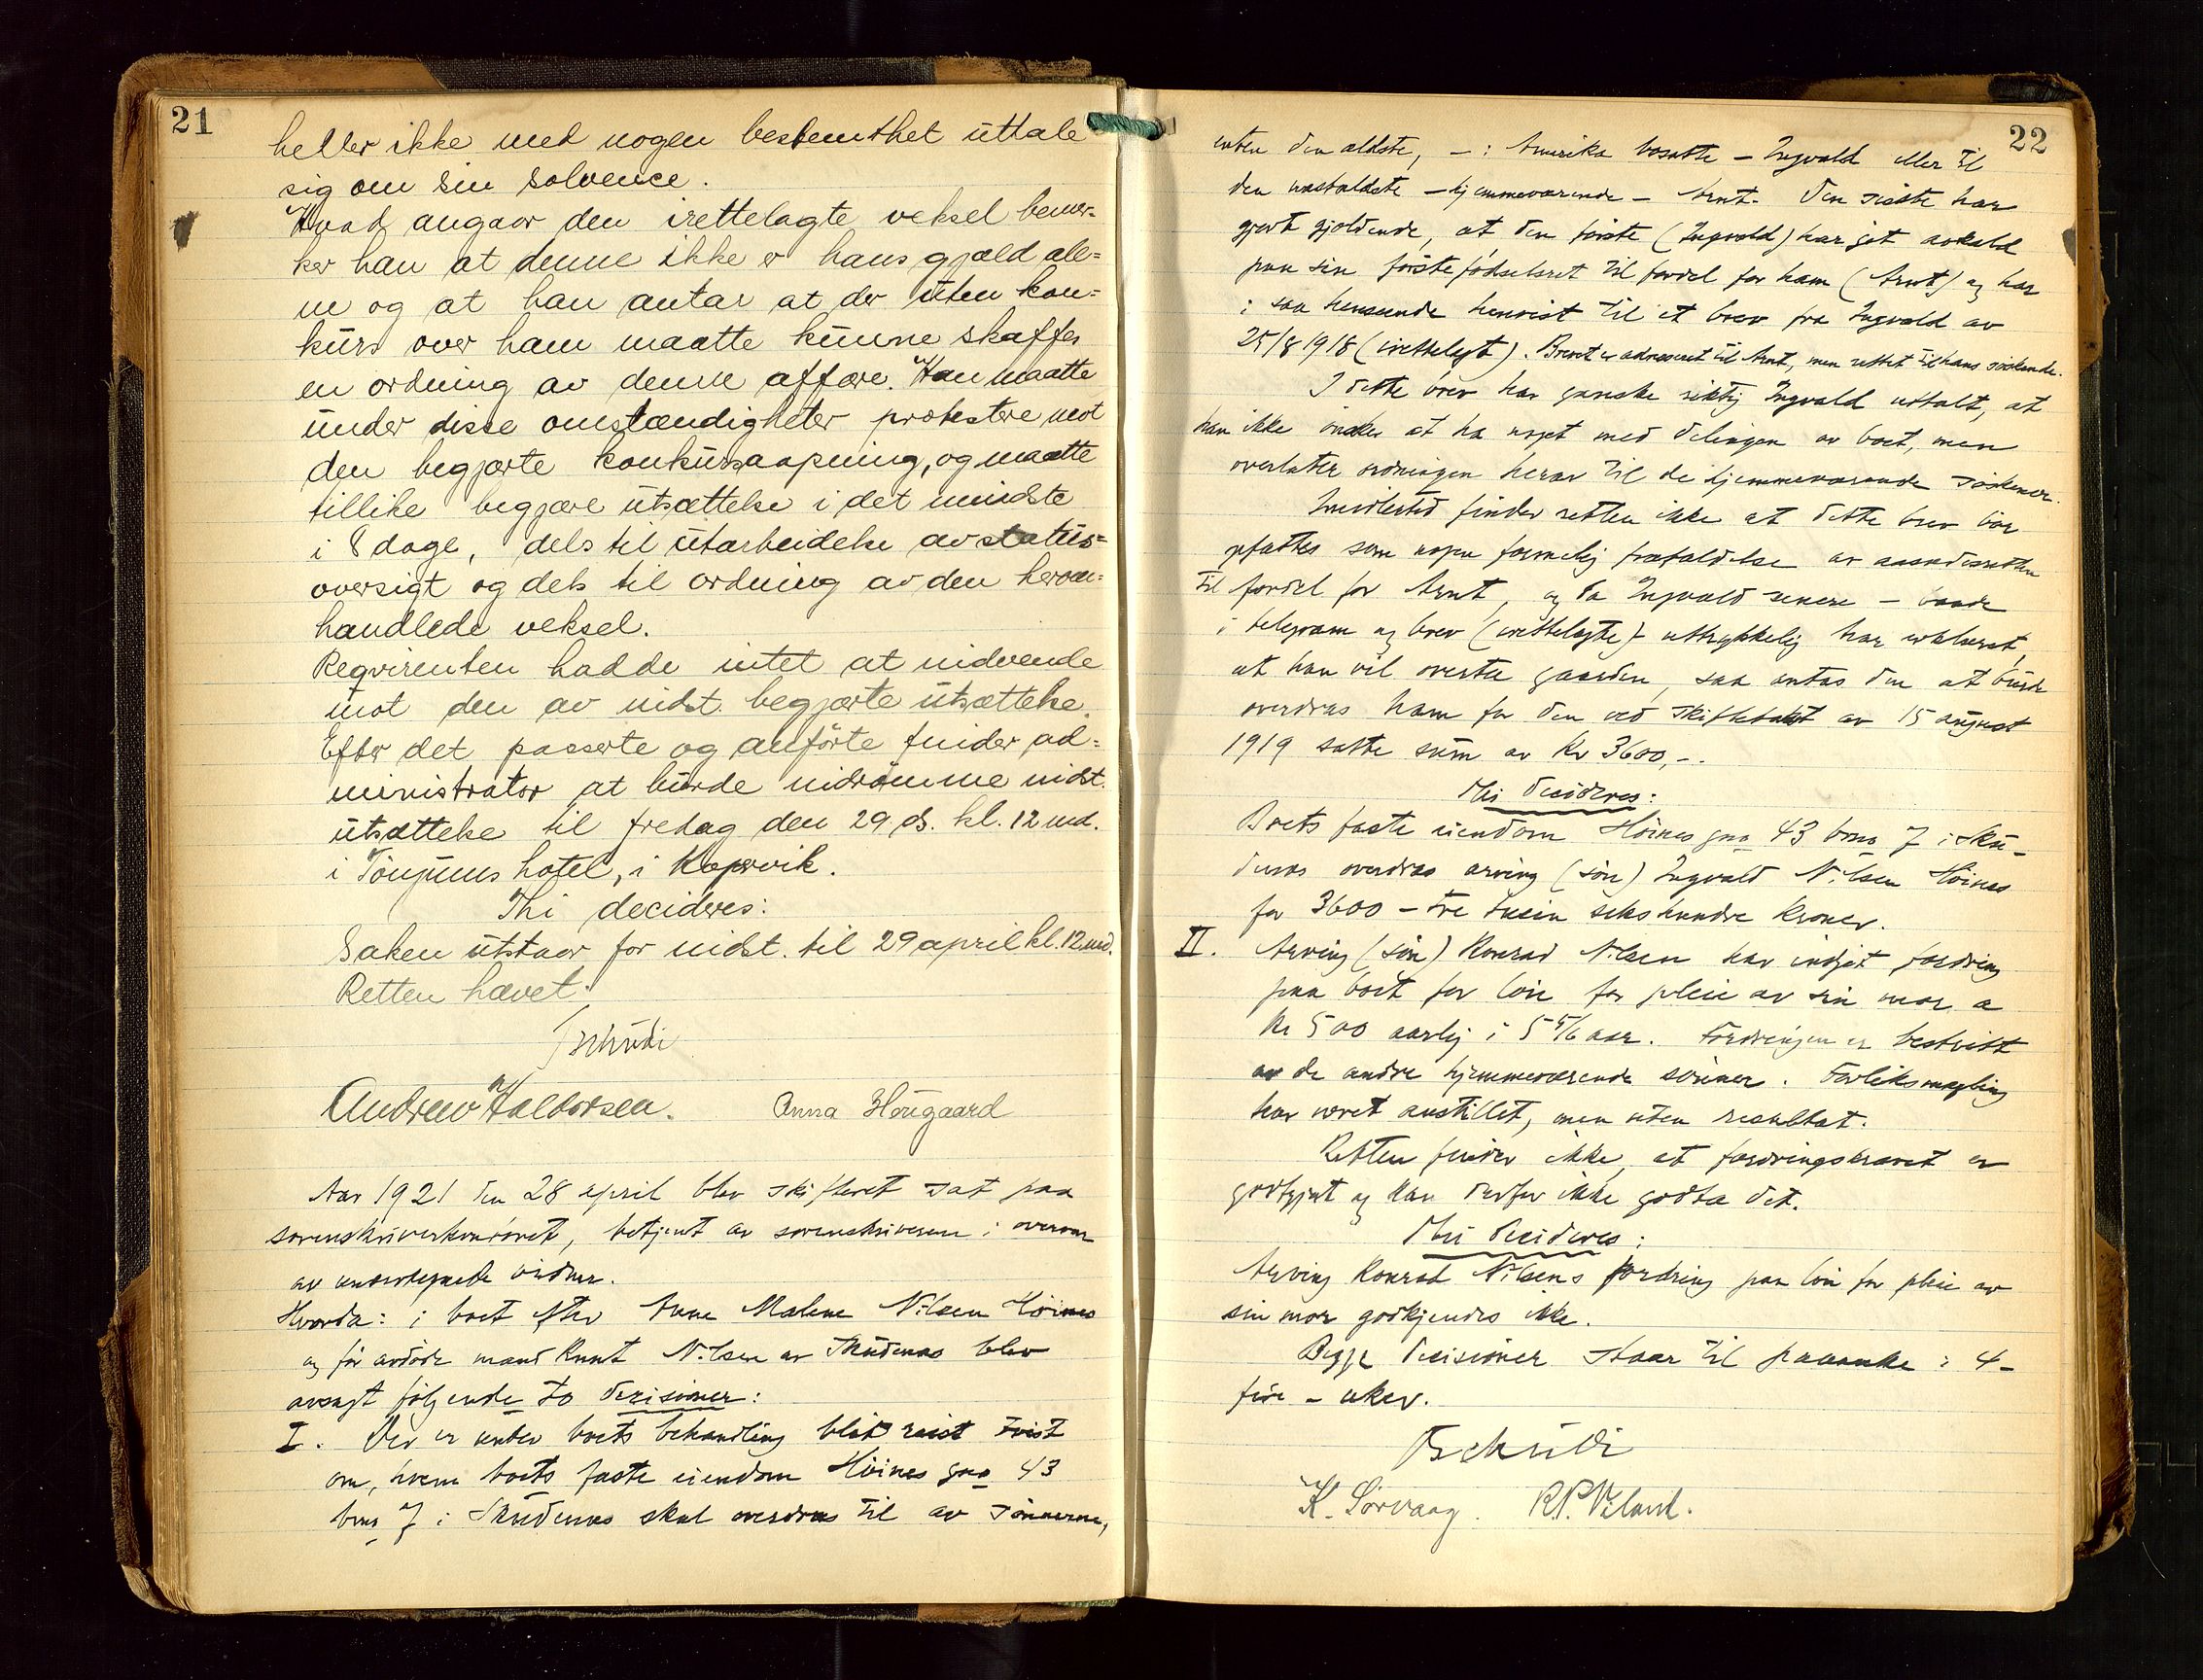 21
heller ikke med nogen bestemthet uttale
sig om sin solvence.
Hvad angaar den irettelagte veksel bemer-
ker han at denne ikke er hans gjæld ale-
ne og at han antar at der uten kon-
kurs over ham maatte kunne skaffes
en ordning av denne affære. Han maatte
under disse omstændigheter protestere mot
den begjærte konkursaapning, og maatte
tillike begjære utsættelse i det mindste
i 8 dage, dels til utarbeidelse av status-
oversigt og dels til ordning av den herom-
handlede veksel.
Reqvirenten hadde intet at indvende
mot den av indst. begjærte utsættelse.
Efter det passerte og anførte finder ad-
ministrator at burde indrømme indst.
utsættelse til fredag den 29. ds. kl. 12 md.
i Tönjums hotel, i Kopervik.
Thi decideres:
Saken utstaar for indst. til 29 april kl. 12 md.
Retten hævet.
Tschudi
Andreas Haldorsen. Anna Hougaard
Aar 1921 den 28 april blev skifteret sat paa
sorenskriverkontoret, betjent av sorenskriveren i overvær
av undertegnede vidner.
Hvorda: i boet efter Anne Malene Nilsen Höines
og før avdøde mand Knut Nilsen av Skudenes blev
avsagt følgende to decisioner:
I. Der er under boets behandling blit reist tvist
om, hvem boets faste eiendom Höines gno 43
brno 7 i Skudenes skal overdras til av sønnerne,
22
enten den ældste, -: Amerika bosatte - Ingvald eller til
den næstældste - hjemmeværende - Arnt. Den sidste har
gjort gjældende, at den første (Ingvald) har gjt avkald
paa sin førstefødselsret til fordel for ham (Arnt) og har
i saa henseende henvist til et brev fra Ingvald av
25/8 1918 (irettelagt). Brevet er adresseret til Arnt, men rettet til hans søskende.
I dette brev har ganske riktig Ingvald uttalt, at
han ikke ønsker at ha noget med delingen av boet, men
overlater ordningen herav til de hjemmeværende søskener.
Imidlertid finder retten ikke at dette brev bør
opfattes som nogen formelig frafaldelse av aasædesretten
til fordel for Arnt, og da Ingvald senere - baade
i telegram og brev (irettelagte) - uttrykkelig har erklæret,
at han vil overta gaarden, saa antas den at burde
overdras ham for den ved skiftetakst av 15 august
1919 satte sum av Kr 3600,-.
Thi decideres:
Boets faste eiendom Höines gno 43 brno 7 i Sku-
denes overdras arving (søn) Ingvald Nilsen Höines
for 3600 - tre tusin sekshundre kroner.
II. Arving (søn) Konrad Nilsen har indgit fordring
paa boet for løn for pleie av sin mor a
Kr 500 aarlig i 5 5/6 aar. Fordringen er bestridt
av de andre hjemmeværende sønner. Forliksmægling
har været anstillet, men uten resultat.
Retten finder ikke, at fordringskravet er
godtgjort og kan derfor ikke godta det.
Thi decideres:
Arving Konrad Nilsens fordring paa løn for pleie av
sin mor godkjendes ikke.
Begge decisioner staar til paaanke i 4-
fire - uker.
Tschudi
K. Sørvaag. R.P. Viland.